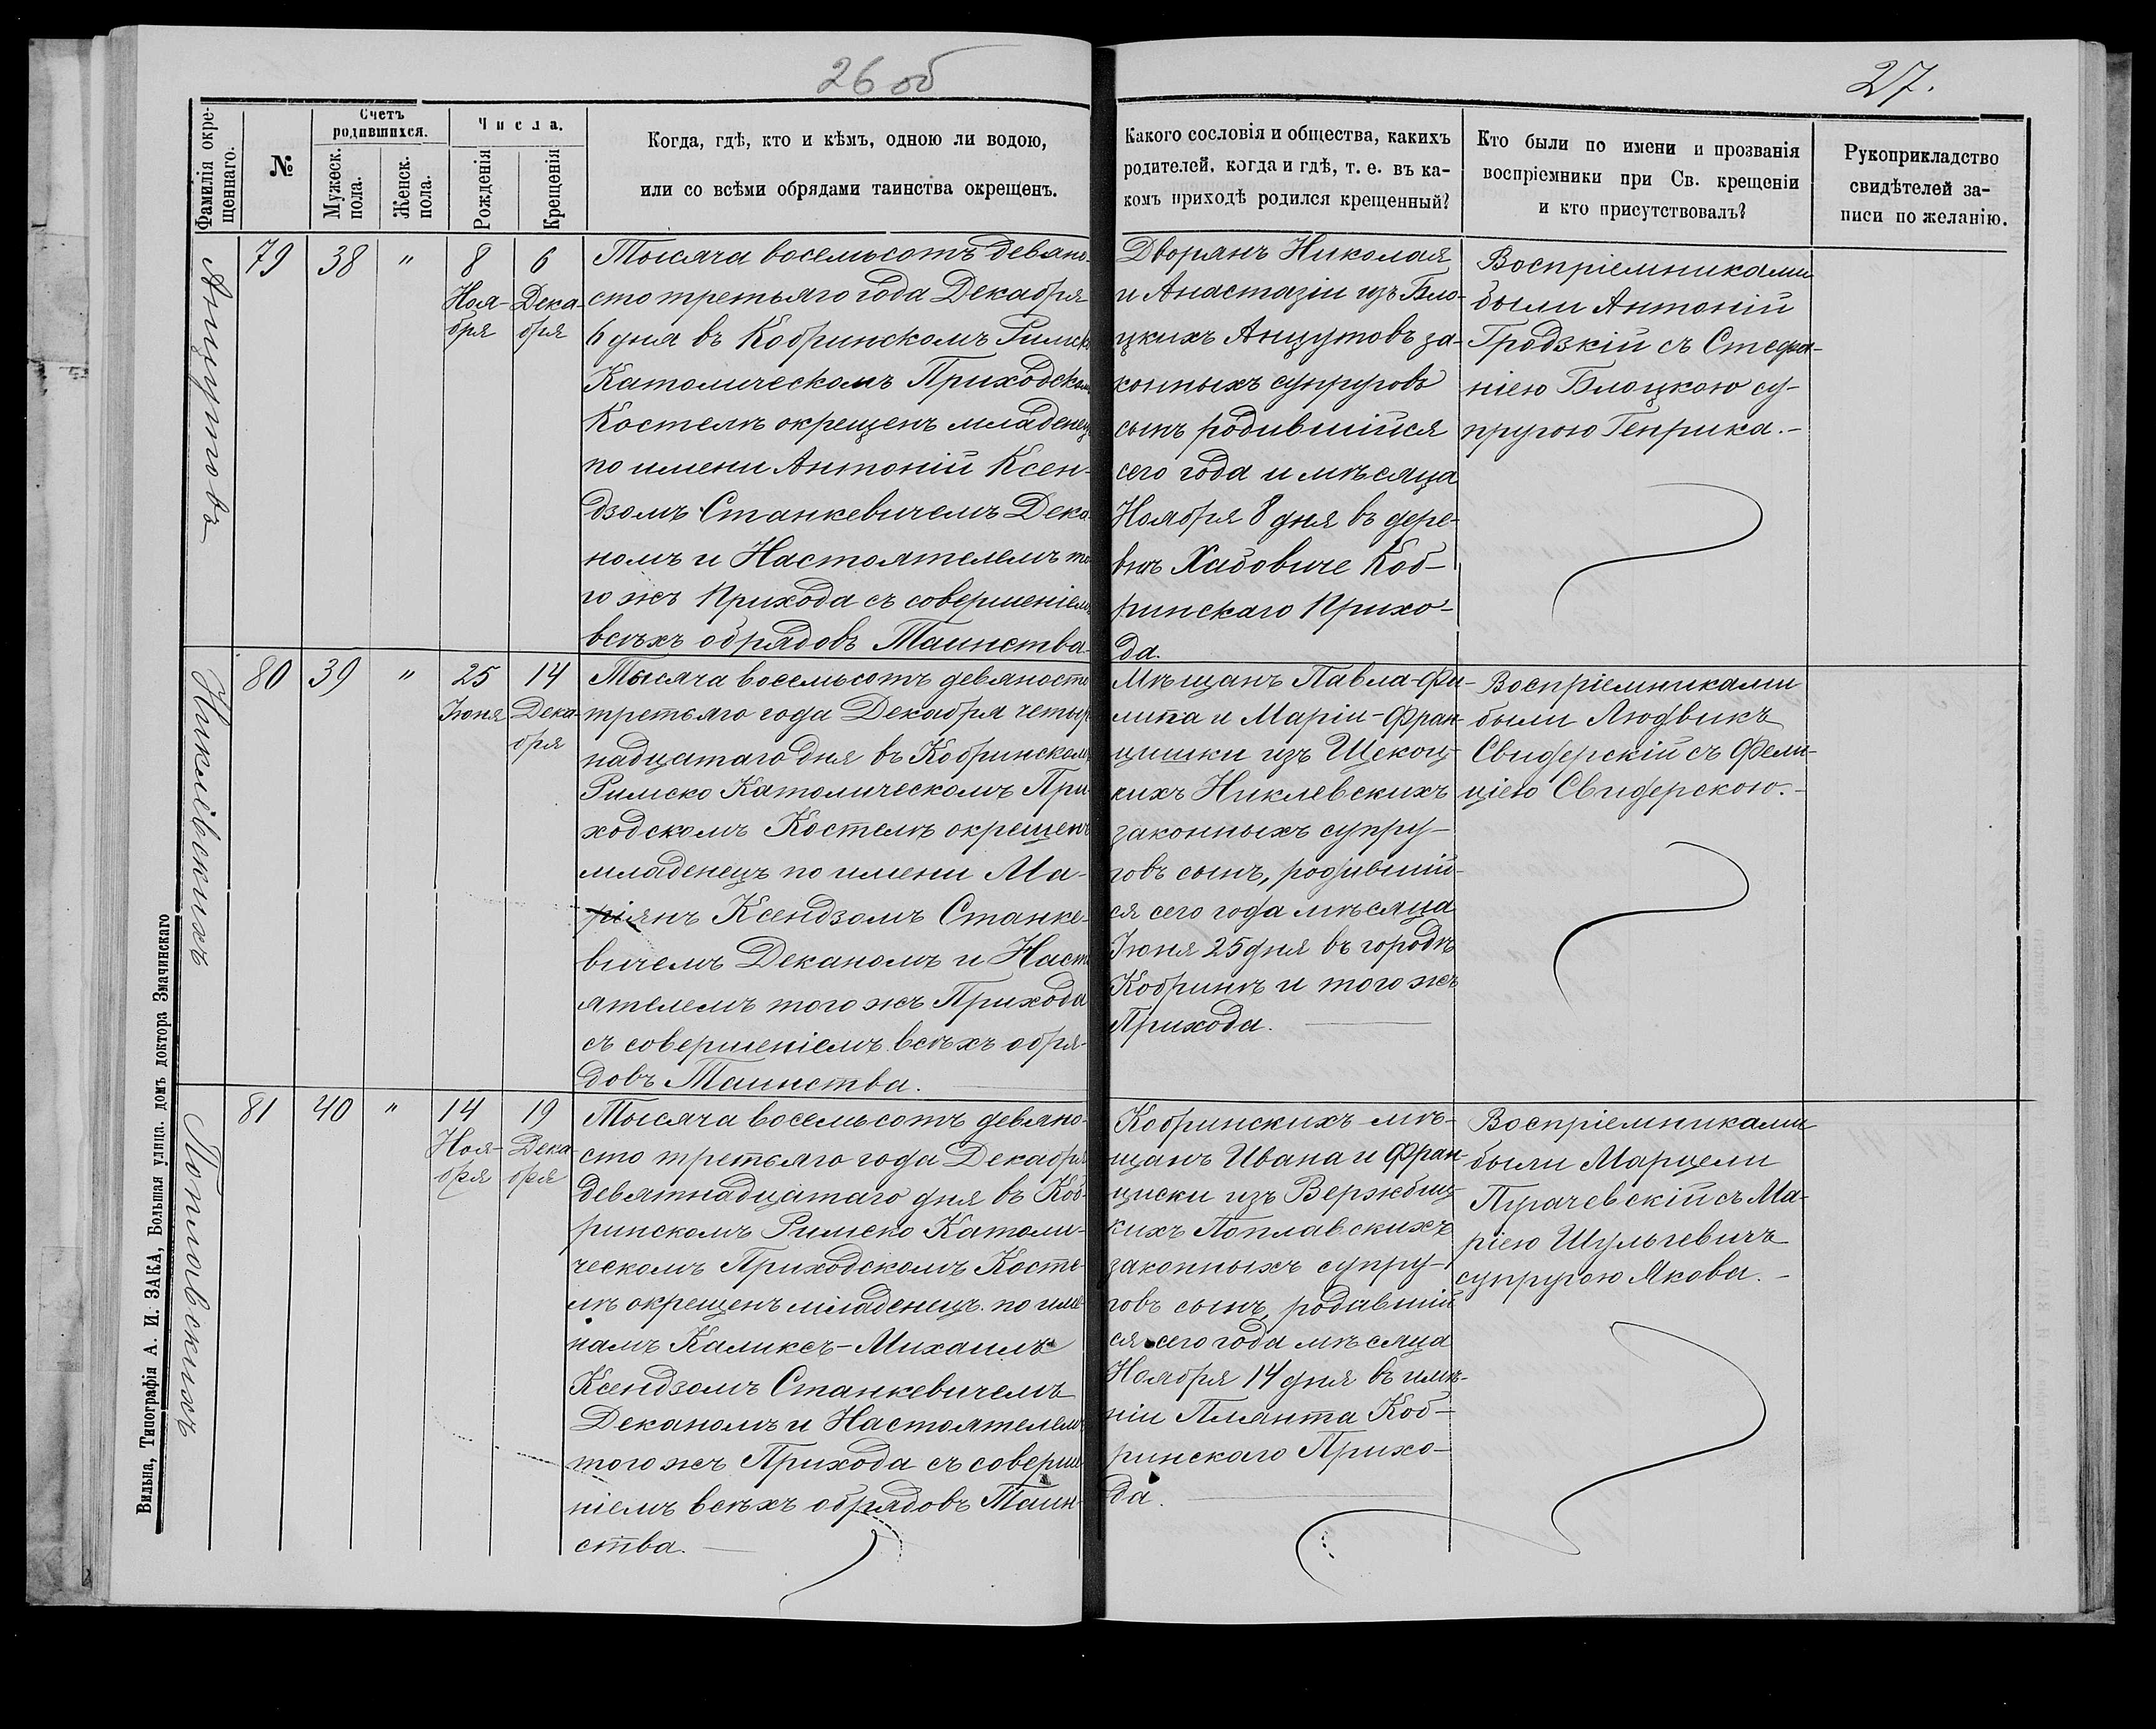 26 об
27.
Фамилія окре-
щеннаго.
№
Счетъ
родившихся.
Мужеск.
пола.
Женск.
пола.
Числа.
Рожденія
Крещенія
Когда, гдѣ, кто и кѣмъ, одною ли водою,
или со всѣми обрядами таинства окрещенъ.
Какого сословія и общества, какихъ
родителей, когда и гдѣ, т. е. въ ка-
комъ приходѣ родился крещенный?
Кто были по имени и прозванія
воспріемники при Св. крещеніи
и кто присутствовалъ?
Рукоприкладство
свидѣтелей за-
писи по желанію.
Анцутовъ
79
38
"
8
Ноя-
бря
6
Дека-
бря
Тысяча восемьсотъ девяно-
сто третьяго года Декабря
6 дня въ Кобринскомъ Римско
Католическомъ Приходскомъ
Костелѣ окрещенъ младенецъ
по имени Антоній Ксен-
дзомъ Станкевичемъ Дека-
номъ и Настоятелемъ то-
го жъ Прихода съ совершеніемъ
всѣхъ обрядовъ Таинства.
Дворянъ Николая
и Анастазіи изъ Бло-
цкихъ Анцутовъ за-
конныхъ супруговъ
сынъ родившійся
сего года и мѣсяца
Ноября 8 дня въ дере-
внѣ Хабовиче Коб-
ринскаго Прихо-
да.
Воспріемниками
были Антоній
Гродзкій съ Стефа-
ніею Блоцкою су-
пругою Генрика.-
Никлевскихъ
80
39
"
25
Іюня
14
Дека-
бря
Тысяча восемьсотъ девяносто
третьяго года Декабря четыр
надцатаго дня въ Кобринскомъ
Римско Католическомъ При-
ходскомъ Костелѣ окрещенъ
младенецъ по имени Ма-
ріянъ Ксендзомъ Станке-
вичемъ Деканомъ и Насто
ятелемъ того жъ Прихода
съ совершеніемъ всѣхъ обря-
довъ Таинства.
Мѣщанъ Павла-Фи-
липа и Маріи-Фран-
цишки изъ Щекоц-
кихъ Никлевскихъ
законныхъ супру-
говъ сынъ, родившій-
ся сего года мѣсяца
Іюня 25 дня въ городѣ
Кобринѣ и того жъ
Прихода.
Воспріемниками
были Людвикъ
Свидерскій съ Фели-
ціею Свидерскою.-
Поплавскихъ
81
40
"
14
Ноя-
бря
19
Дека-
бря
Тысяча восемьсотъ девяно-
сто третьяго года Декабря
девятнадцатаго дня въ Коб-
ринскомъ Римско Католи-
ческомъ Приходскомъ Косте-
лѣ окрещенъ младенецъ по име-
намъ Каликсъ-Михаилъ
Ксендзомъ Станкевичемъ
Деканомъ и Настоятелемъ
того жъ Прихода съ соверше
ніемъ всѣхъ обрядовъ Таин-
ства.
Кобринскихъ мѣ-
щанъ Ивана и Фран-
циски изъ Вержбиц-
кихъ Поплавскихъ
законныхъ супру-
говъ сынъ, родавшій
ся сего года мѣсяца
Ноября 14 дня въ имѣ-
ніи Плянта Коб-
ринскаго Прихо-
да.
Воспріемниками
были Марцели
Пурачевскій съ Ма-
ріею Шульгевичъ
супругою Якова.-
Вильна, Типографія А. И. ЗАКА, Большая улица. домъ доктора Змачинскаго